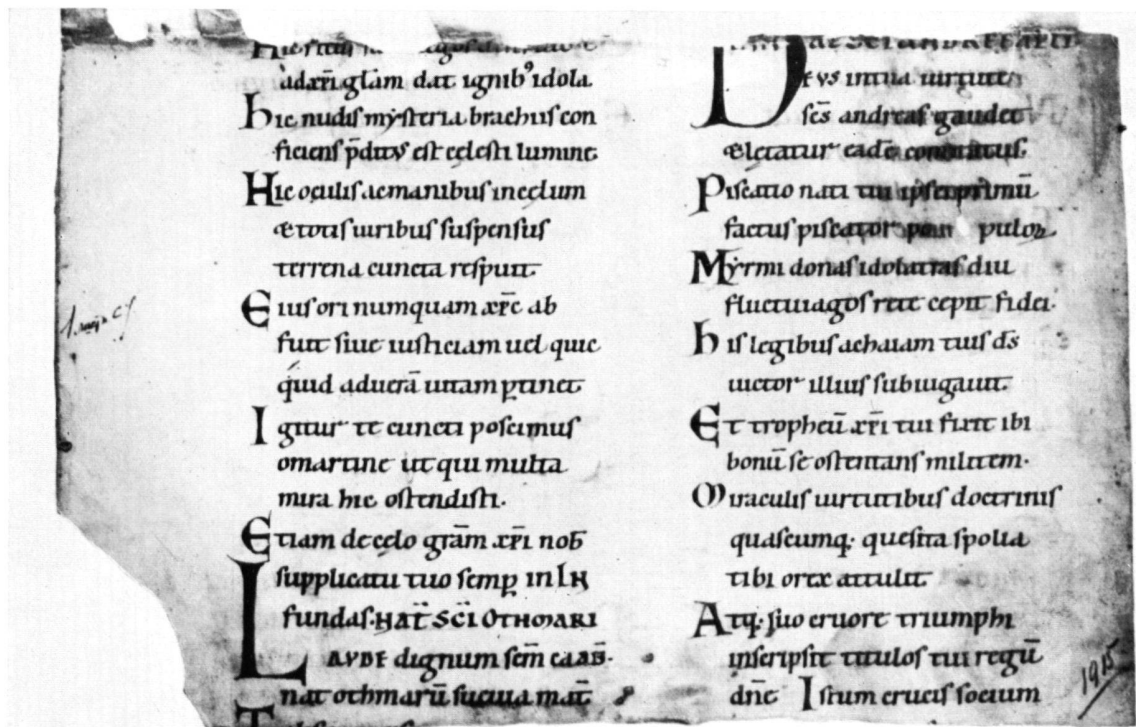 Hic
ad xp̄i gl̄am dat ignibꝰ idola
hic nudis mẏsteria brachiis con
ficiens p̄ditus est celesti lumine·
Hic oculis ac manibus in celum
& totis uiribus suspensus
terrena cuncta respuit·
Eius ori numquam xp̄c ab
fuit siue iusticiam uel quic
quid ad uerā uitam ꝑtinet·
Igitur te cuncti poscimus
o martine ut qui multa
mira hic ostendisti·
Etiam de celo gr̄am xp̄i nob̄
supplicatu tuo semꝑ in
fundas· SC̄I OTHMARI
LAVDE dignum sc̄m
nat othmarū sueuia mat̄
SC̄I ANDREE
DEVS in tua uirtute
sc̄s andreas gaudet
& letatur eadē comitatus·
Piscatio nati tui ipse primū
factus piscator puloꝝ
Mẏrmidonas idolatras diu
fluctiuagos rete cepit fidei·
his legibus achaiam tuis d̄s
uictor illius subiugauit·
Et tropheū xp̄i tui fixit ibi
bonū se ostentans militem·
Miraculis uirtutibus doctrinis
quascumq· quesita spolia
tibi o rex attulit·
Atq· suo cruore triumphi
inscripsit titulos tui regū
dn̄e Istum crucis socium
1915